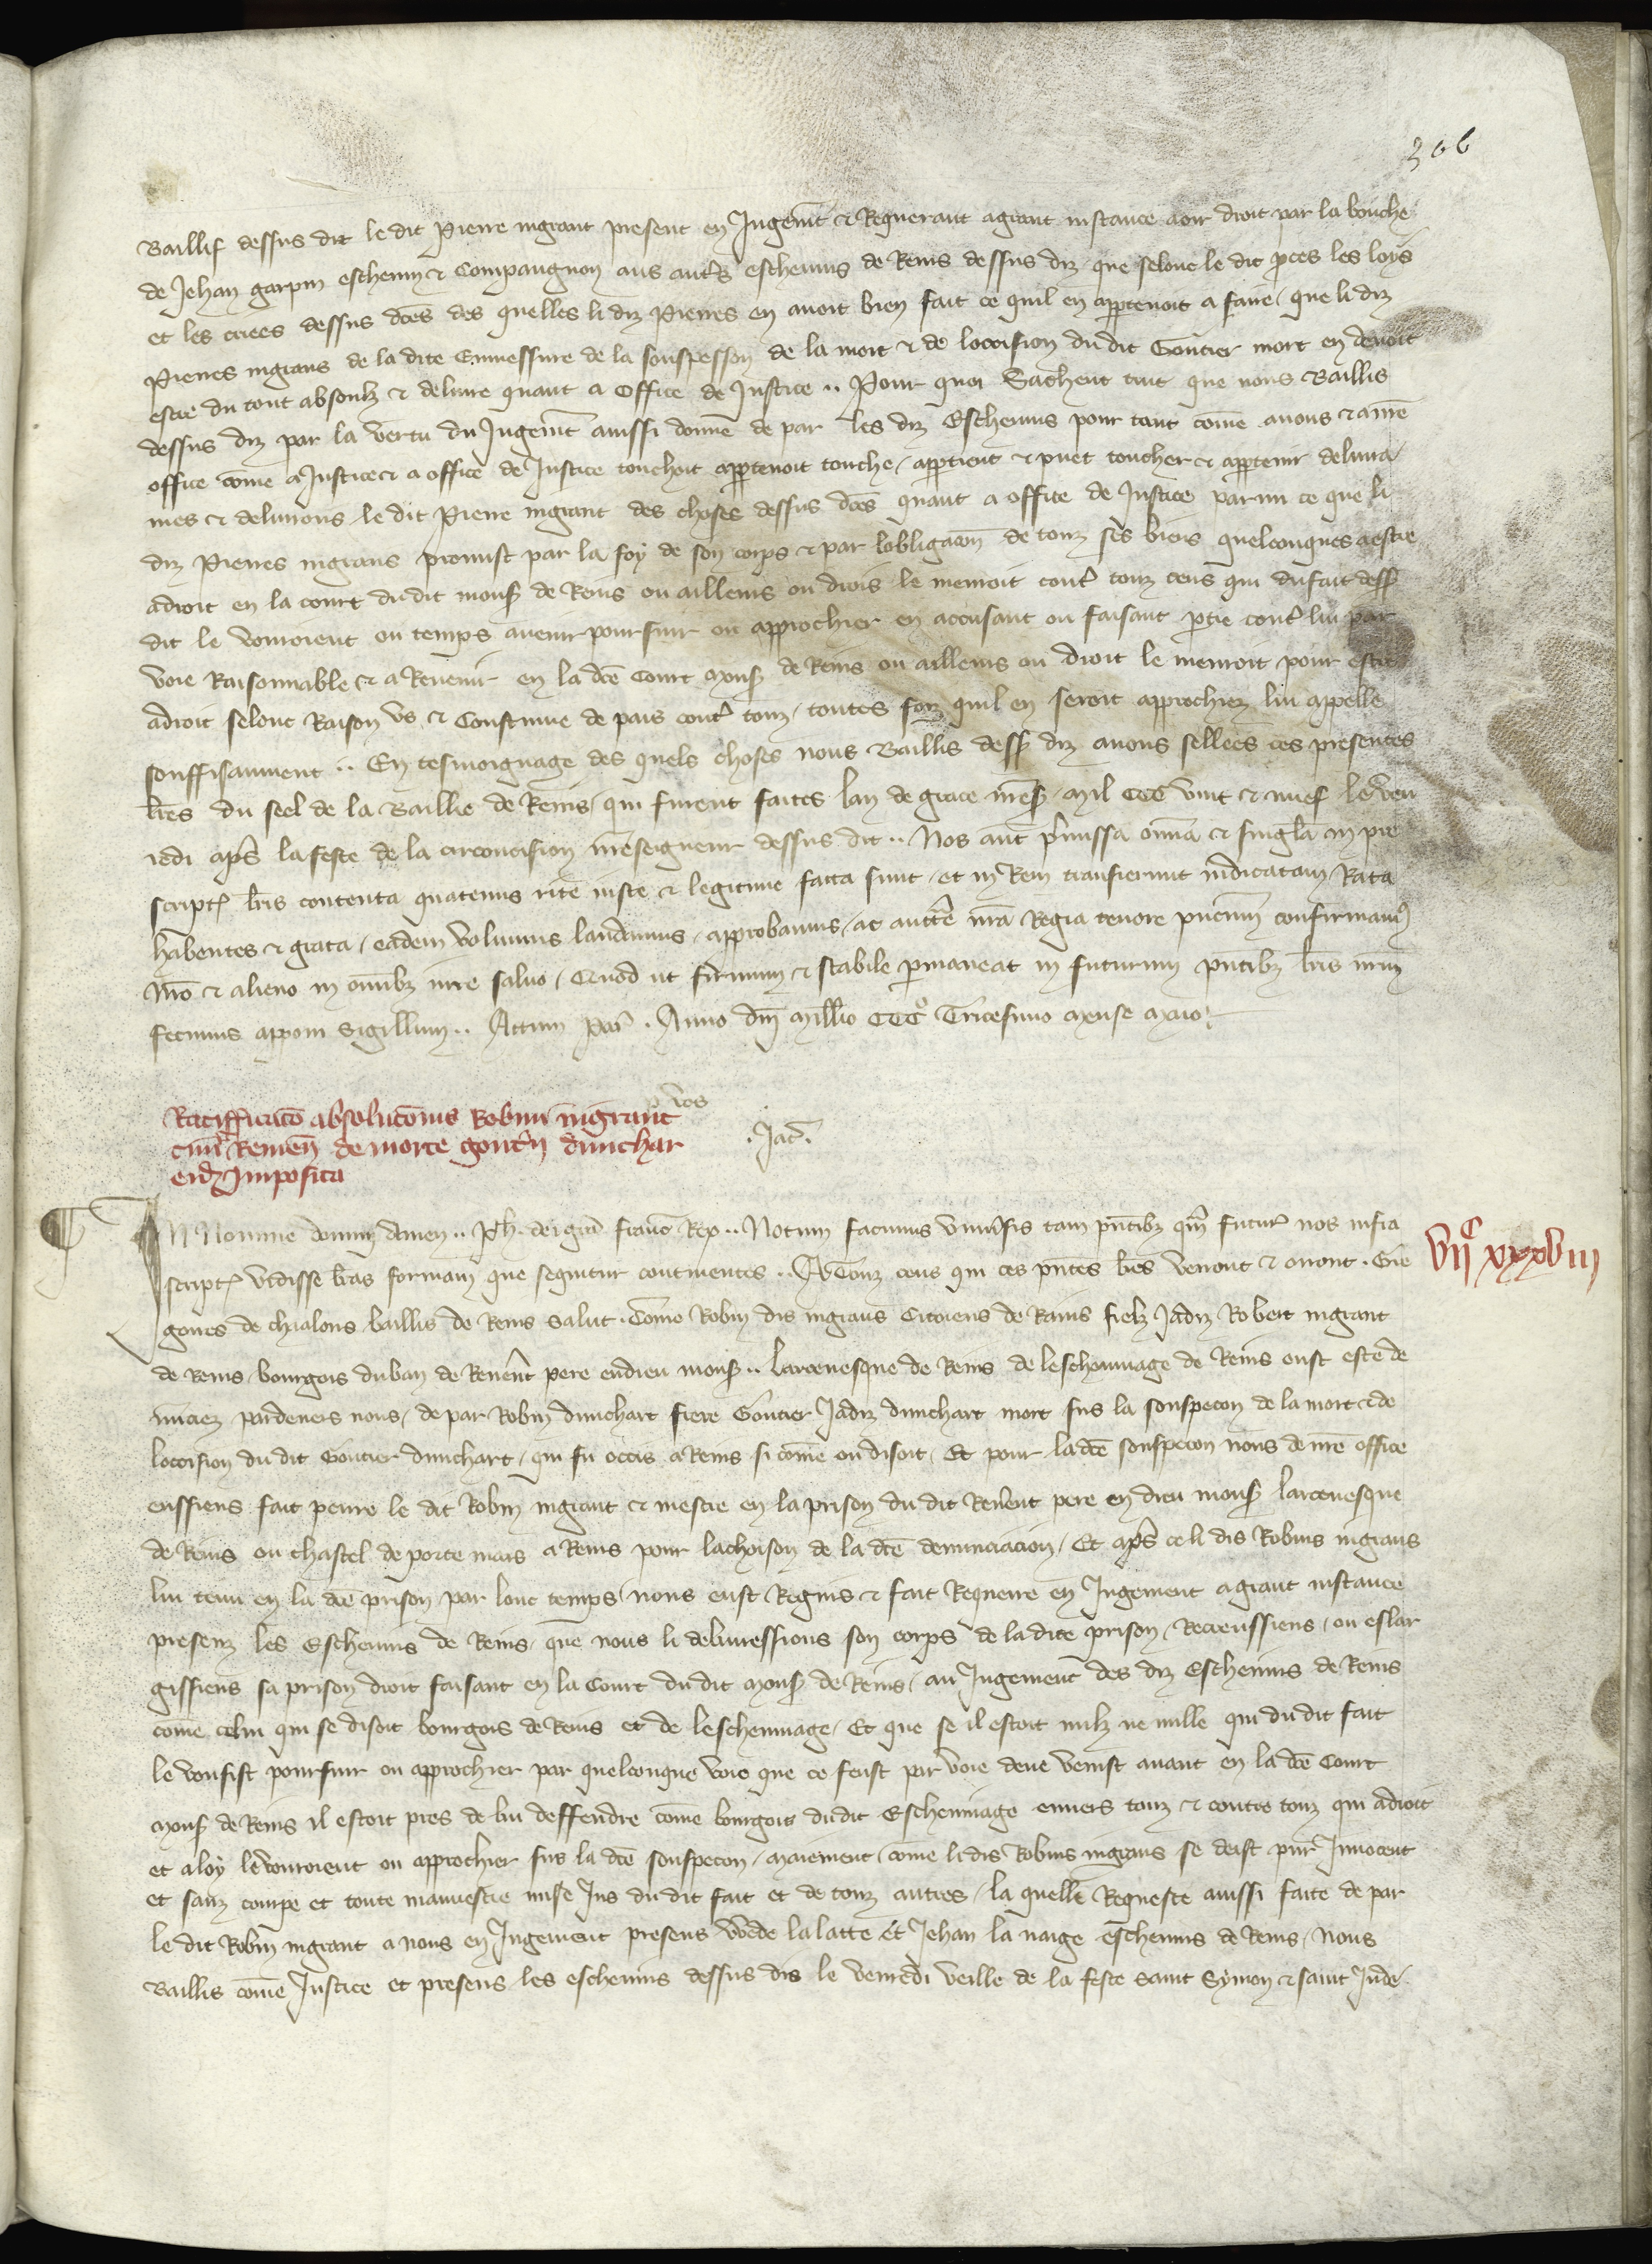 306
Baillif dessus dit le dit Pierre ingrant present en Jugemt & Requerant a grant instance avoir droit par la bouche
de Jehan garpin eschevin & Compaignon aus autrs eschevins de Reins dessus diz que selonc le dit pces les loys
et les criees dessus dces des quelles li diz Pierres en avoit bien fait ce quil en appartenoit a faire, que li diz
Pierres ingrans de la dite Enmessure de la souspesson de la mort & de loccision du dit Goutier mort en devoit
estre du tout absoulz & delivre quant a Office de Justice .. Pour quoi Sachent tuit que nous Baillis
dessus diz par la vertu du Jugemt aussi donne de par les diz Eschevins pour tant come a nous & a nre
office come a Justice & a office de Justice touchoit appartenoit touche, appartient & puet toucher & appartenir delivra
mes & delivrons le dit Pierre ingrant des choses dessus dces quant a office de Justice parmi ce que li
diz Pierres ingrans promist par la foy de son corps & par lobligacion de touz ses biens quelconques a estre
a droit en la court du dit mons de Reins ou ailleurs ou drois le menroit contr touz ceus qui du fait dess
dit le vourroient ou temps avenir poursuir ou approchier en accusant ou faisant ptie contr lui par
voie Raisonnable & a Revenir en la dce Court mons de Reins ou ailleurs ou droit le menroit pour estre
a droit selonc Raison us & Coustume de pais contr touz, toutes foiz quil en seroit approchiez lui appelle
souffisanment .. En tesmoignage des quels choses nous Baillis dess diz avons sellees ces presentes
lres du seel de la Baillie de Reins, qui furent faites lan de grace mil CCC vint & nuef le ven
redi aps la feste de la circoncision nreseigneur dessus dit .. Nos aut pmissa omnia & singla in pre
script lris contenta quatenus rite iuste & legitime facta sunt, et in Rem transierunt iudicatam Rata
habentes & grata, eadem volumus laudamus, approbamus, ac auctte nra Regia tenore pncium confirmam
Nro & alieno in omibz iure salvo, Quod ut firmum & stabile pmaneat in futurum pntibz lris nrm
fecimus apponi Sigillum .. Actum Par. Anno dni Millio CCCo Tricesimo mense maio.
Ratifficatio absolucionis Robini ingrant
civis Remen de morte gouterii dunchar
eidz Imposita
. Jac .
IN Nomine domini Amen .. Ph. dei gra franc Rex .. Notum facimus univsis tam pntibz qm futur nos infra
script vidisse lras formam que sequitur continentes .. A Touz ceus qui ces pntes lres verront & orront. Gre
goires de chaalons baillis de Reins Salut. Come Robin dis ingrans Citoiens de Rains fielz Jadiz Robert ingrant
de Reins, bourgois du ban de Revert pere en dieu mons .. larcevesque de Reins de leschevinage de Reins eust este de
nuciez pardevers nous, de par Robin dunchart frere Goutier Jadiz dunchart mort sus la souspecon de la mort & de
loccision du dit Goutier dunchart, qui fu occis a Reins si come on disoit. Et pour la dce souspecon nous de nre office
eussiens fait penre le dit Robin ingrant & mestre en la prison du dit Revrent pere en dieu mons larcevesque
de Reins ou chastel de porte mars a Reins pour lachoison de la dce denunciacion, Et aps ce li dis Robins ingrans
lui tenu en la dce prison par lonc temps nous eust Requis & fait Requerre en Jugement a grant instance
presenz les Eschevins de Reins, que nous li delivressions son corps de la dite prison, Recreussiens, ou eslar
gissiens sa prison droit faisant en la Court du dit Mons de Reins, au Jugement des diz Eschevins de Reins
come celui qui se disoit bourgois de Reins et de leschevinage, Et que se il estoit nulz ne nulle qui du dit fait
le vousist poursuir ou approchier par quelconque voie que ce feust par voie deue venist avant en la dce Court
mons de Reins il estoit pres de lui deffendre come bourgois du dit Eschevinage envers touz & contre touz qui a droit
et a loy le vourroient ou approchier sus la dce souspecon, maiement come li dis Robins ingrans se deist pur Innocent
et sanz coupe et toute mauvestie mise Jus du dit fait et de touz autres, la quelle Requeste aussi faite de par
le dit Robin ingrant a nous en Jugement presens Voede lalatte et Jehan la naige eschevins de Reins, Nous
Baillis come Justice et presens les eschevins dessus dis le venredi veille de la feste Saint Symon & saint Jude
VIIC XXXVIII